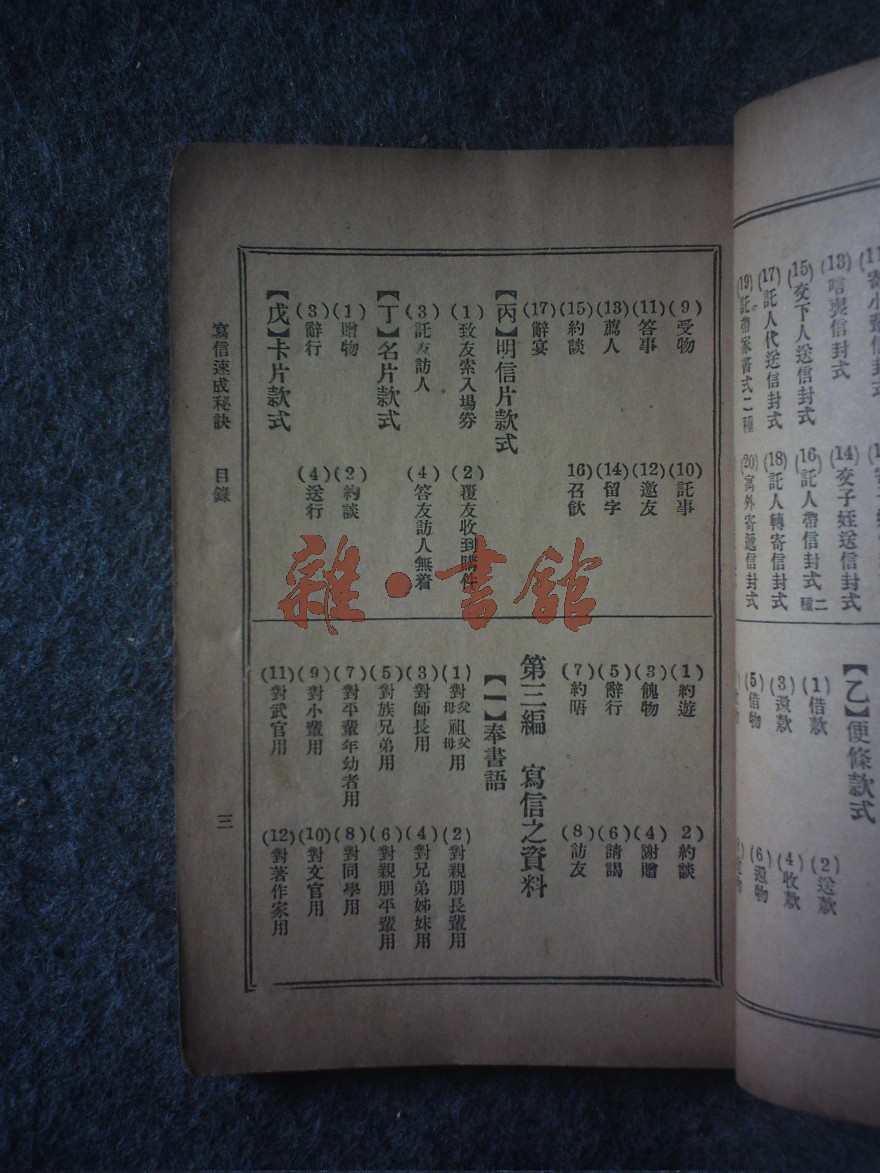 寄小輩信封式
(13)唁喪信封式
(14)交子姪送信封式
(15)交下人送信封式
(16)託人帶信封式二種
(17)託人代送信封式
(18)託人轉寄信封式
(19)託帶家書式二種
【乙】便條款式
(1)借款
(2)送款
(3)還款
(4)收款
(5)借物
(6)還物
(9)受物
(10)託事
(11)答事
(12)邀友
(13)薦人
(14)留字
(15)約談
16)召飲
(17)辭宴
【丙】明信片款式
(1)致友索入場券
(2)覆友收到購件
(3)託友訪人
(4)答友訪人無着
【丁】名片款式
(1)贈物
(2)約談
(3)辭行
(4)送行
【戊】卡片款式
(1)約遊
2)約談
(3)餽物
(4)謝贈
(5)辭行
(6)請謁
(7)約晤
(8)訪友
第三編 寫信之資料
【一】奉書語
(1)對父母祖父母用
(2)對親朋長輩用
(3)對師長用
(4)對兄弟姊妹用
(5)對族兄弟用
(6)對親朋平輩用
(7)對平輩年幼者用
(8)對同學用
(9)對小輩用
(10)對文官用
(11)對武官用
(12)對著作家用
寫信速成秘訣 目錄
三
雜·書館